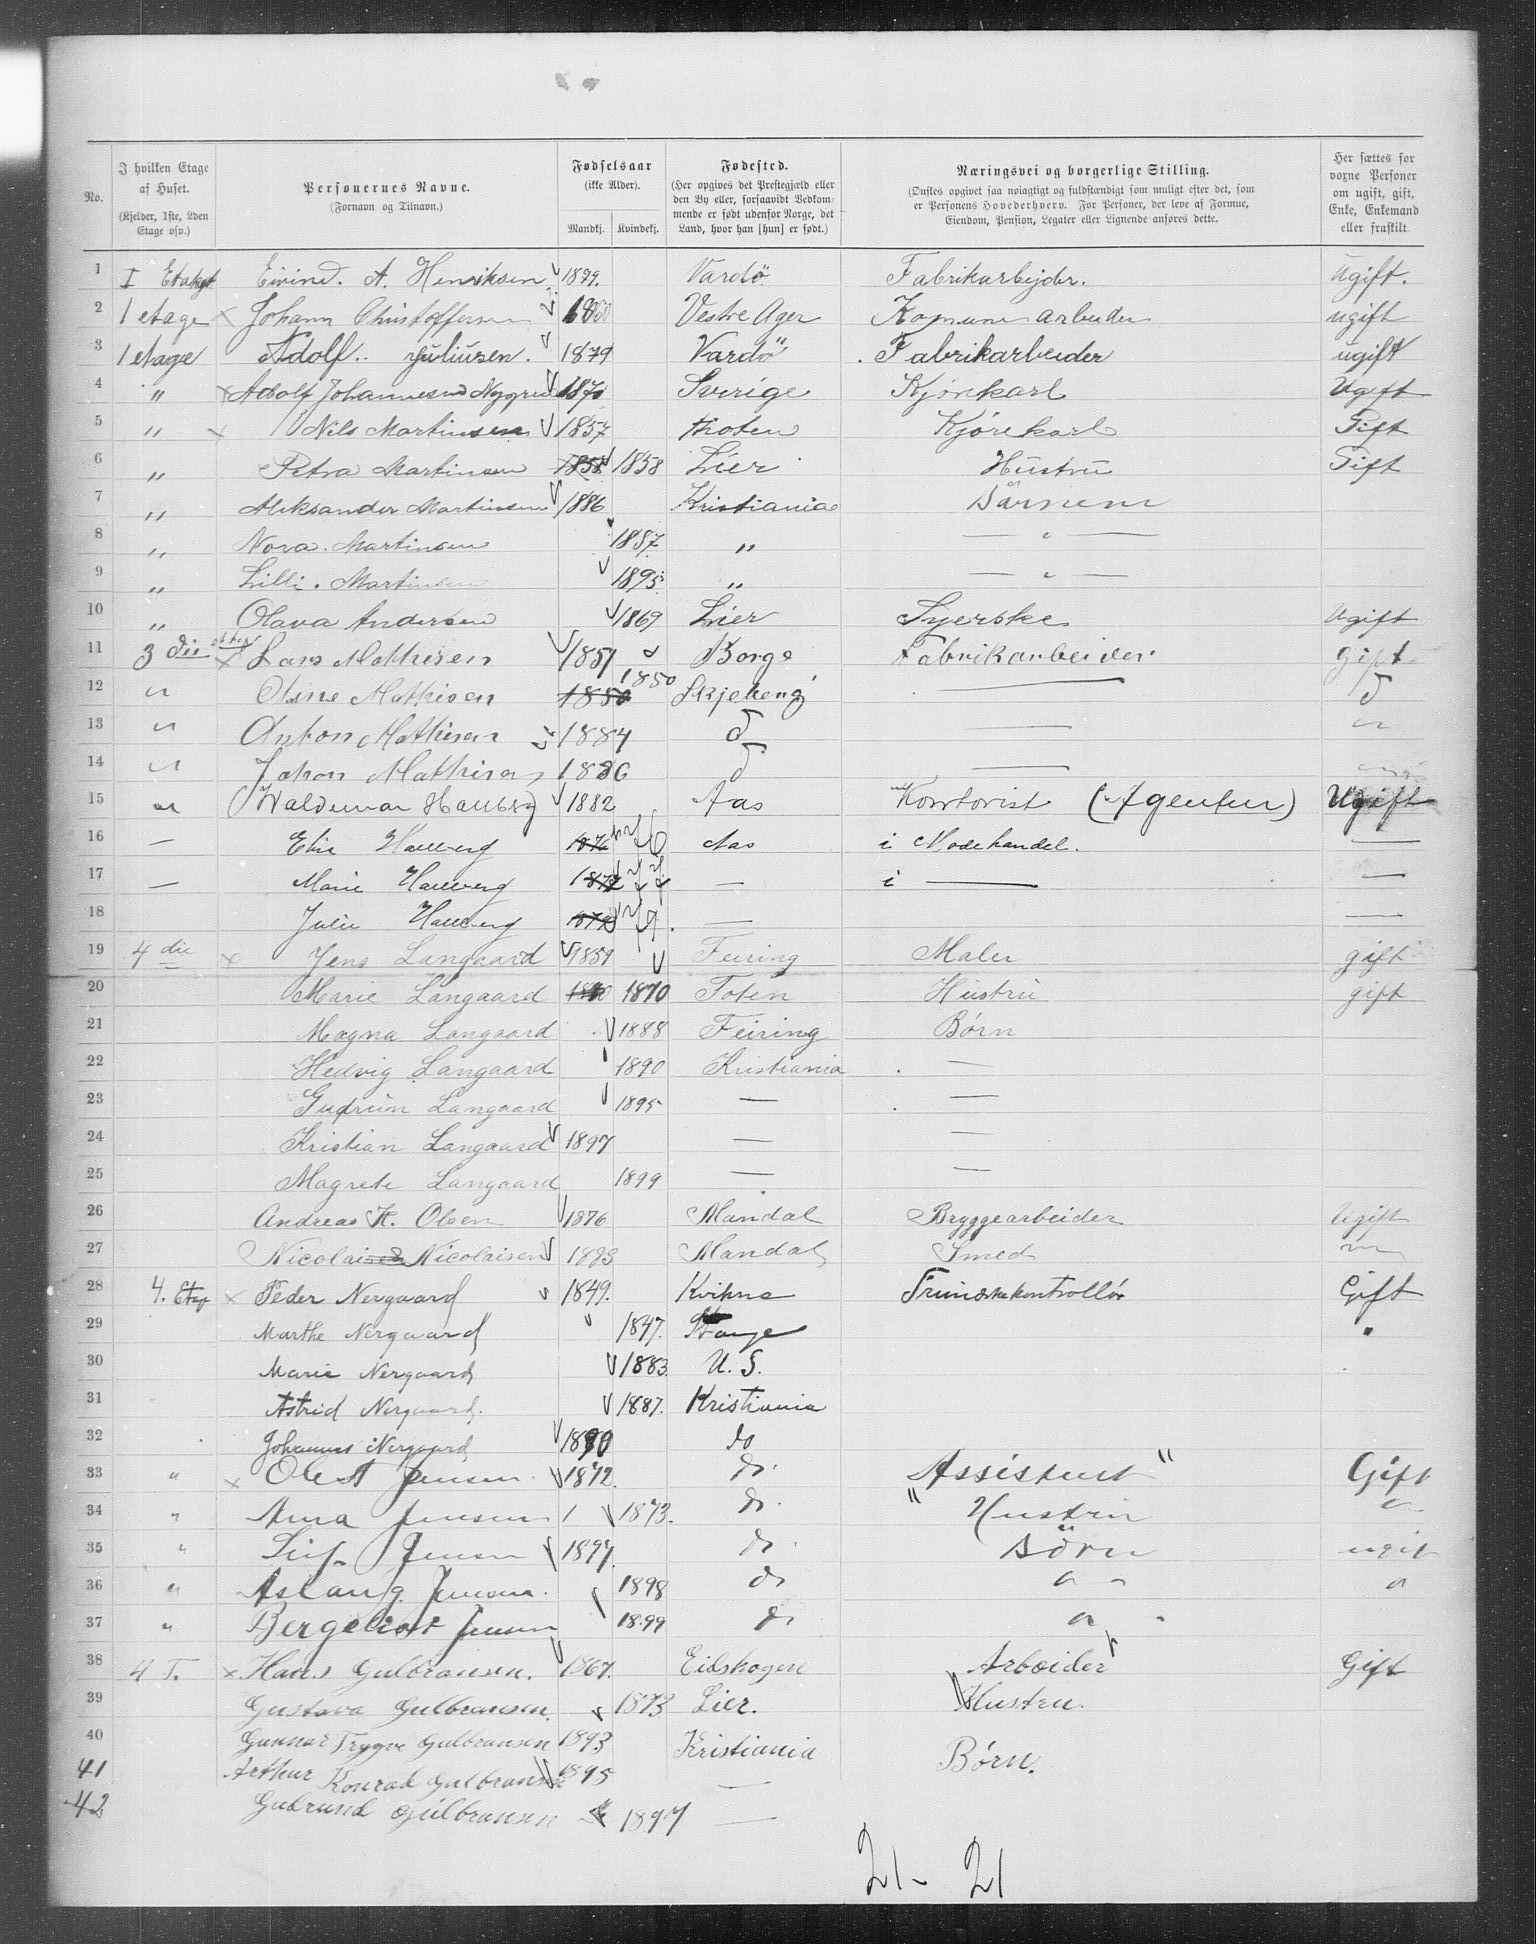 No.
I hvilken Etage af Huset. (Kjelder, 1ste, 2den Etage osv.)
Personernes Navne. (Fornavn og Tilnavn.)
Fødselsaar (ikke Alder). Mandkj. Kvindekj.
Fødested. (Her opgives det Præstegjeld eller den By eller, forsaavidt Vedkommende er født udenfor Norge, det Land, hvor han [hun] er født.)
Næringsvei og borgerlige Stilling. (Ønskes opgivet saa nøiagtigt og fuldstændigt som muligt efter det, som er Personens Hovederhverv. For Personer, der leve af Formue, Eiendom, Pension, Legater eller Lignende anføres dette.
Her sættes for voxne Personer om ugift, gift, Enke, Enkemand eller fraskilt.
1 I Eivind. A. Henriksen 1879. Vardö Fabrikarbejder. Ugift.
2 1 etage Johann Christoffersen Vestre Ager Komune arbeider ugift
3 1 etage Adolf Juliusen. 1879 Vardö Fabrikarbeider ugift
4 " Adolf Johannesen Sverige Kjørekarl Ugift
5 " Nils Martinsen 1857 thoten Kjørekarl Gift
6 " Petra Martinsen 1858 Lier Hustru Gift
7 " Aleksander Martinsen 1886 Kristiania Børnene
8 " Nora. Martinsen 1887 " — " —
9 " Lilli. Martinsen 1895 " — " —
10 " Olava Andersen 1869 Lier Syerske Ugift
11 3 die Lars Mathisen 1851 Borge Fabrikarbeider Gift
12 " Oline Mathisen 1850 Skjeberg — d
13 " Anton Mathisen 1884 d — "
14 " Johan Mathisen 1886 d —
15 " Waldemar Hauberg 1882 Aas Kontorist (Agentur) Ugift
16 — Elise Hauberg 76 Aas i Modehandel. —
17 — Marie Hauberg 77 — i — —
18 Julie Hauberg 79. — —
19 4 die Jens Langaard 1859 Feiring Maler gift
20 Marie Langaard 1870 Toten Hustru gift
21 Magna Langaard 1888 Feiring Børn
22 Hedvig Langaard 1890 Kristiania —
23 Gudrun Langaard 1895 — —
24 Kristian Langaard 1897 — —
25 Magrete Langaard 1899 — —
26 Andreas K. Olsen 1876 Mandal Bryggearbeider Ugift
27 Nicolai Nicolaisen 1883 Mandal Smed "
28 4. Etage Peder Nergaard 1849. Kvikne Gift
29 Marthe Nergaard 1847. Stange "
30 Marie Nergaard 1883. U. S.
31 Astrid Nergaard. 1887. Kristiania
32 Johannes Nergaard 1890 do
33 " Ole A Jensen 1872. do. "Assistent" Gift
34 " Anna Jensen 1873. do. Hustru "
35 " Leif Jensen 1897. do. Börn ugift
36 " Aslaug Jensen. 1898 do " "
37 " Bergeliot Jensen 1899 do "
38 4 T. Hans Gulbransen. 1867. Eidskogen Arbeider Gift
39 Gustava Gulbransen. 1873 Lier. Hustru.
40 Gunnar Trygve Gulbransen 1893 Kristiania Børn.
41 Arthur Konrad Gulbransen 1895 —
42 Gudrund Gulbransen 1897 —
21 - 21